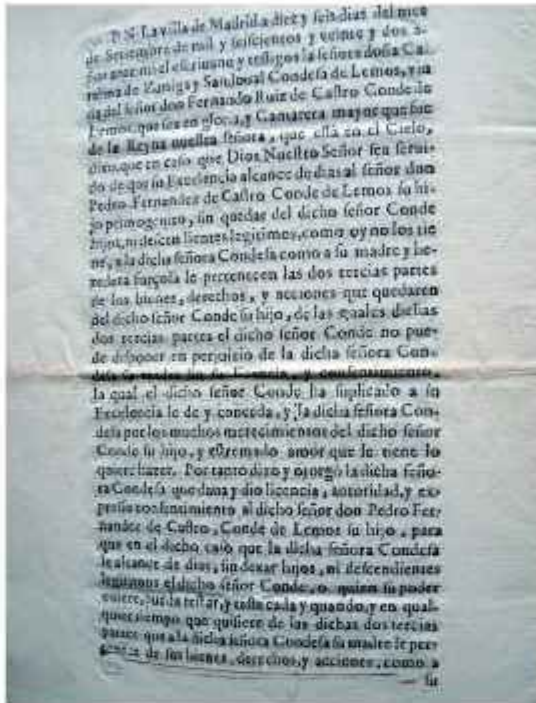 EN La villa de Madrid a diez y seis dias del mes
de Setiembre de mil y seiscientos y veinte y dos a-
ños ante mi el escriuano y testigos la señora doña Ca-
talina de Zuñiga y Sandoual Condesa de Lemos, viu
da del señor don Fernando Ruiz de Castro Conde de
Lemos, que sea en gloria, y Camarera mayor que fue
de la Reyna nuestra señora, que está en el Cielo,
dixo, que en caso que Dios Nuestro Señor sea serui-
do de que su Excelencia alcance de dias al señor don
Pedro Fernandez de Castro Conde de Lemos su hi-
jo primogenito, sin quedar del dicho señor Conde
hijos, ni descendientes legitimos, como oy no los tie
ne, a la dicha señora Condesa como a su madre y he-
redera forçosa le pertenecen las dos tercias partes
de los bienes, derechos, y acciones que quedaren
del dicho señor Conde su hijo, de las quales dichas
dos tercias partes el dicho señor Conde no pue-
de disponer en perjuicio de la dicha señora Con-
desa su madre sin su licencia, y consentimiento,
la qual el dicho señor Conde ha suplicado a su
Excelencia le de y conceda, y la dicha señora Con-
desa por los muchos merecimientos del dicho señor
Conde su hijo, y estremado amor que le tiene lo
quiere hazer. Por tanto dixo y otorgo la dicha seño-
ra Condesa que daua y dio licencia, autoridad, y ex-
presso consentimiento al dicho señor don Pedro Fer-
nandez de Castro, Conde de Lemos su hijo, para
que en el dicho caso que la dicha señora Condesa
le alcance de dias, sin dexar hijos, ni descendientes
legitimos el dicho señor Conde, o quien su poder
huuiere, pueda testar, y teste cada y quando, y en qual-
quier tiempo que quisiere de las dichas dos tercias
partes que a la dicha señora Condesa su madre le per-
tenecen de sus bienes, derechos, y acciones, como a
su